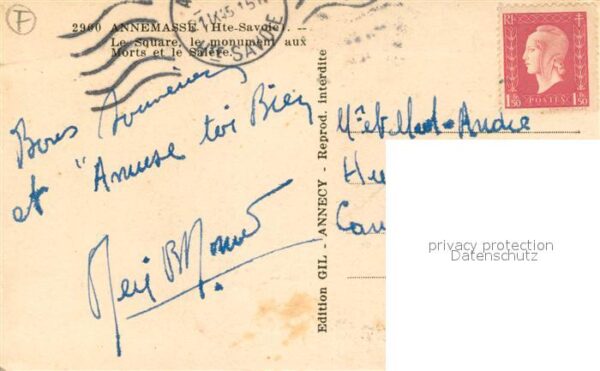 F
2960 ANNEMASSE (Hte-Savoie). —
Le Square, le monument aux
Morts et le Salève.
SAVOIE
RF
1F50 POSTES 1F50
Bons Souvenirs
et "Amuse toi Bien
Edition GIL - ANNECY - Reprod. interdite
Mr et Mad. André
privacy protection
Datenschutz